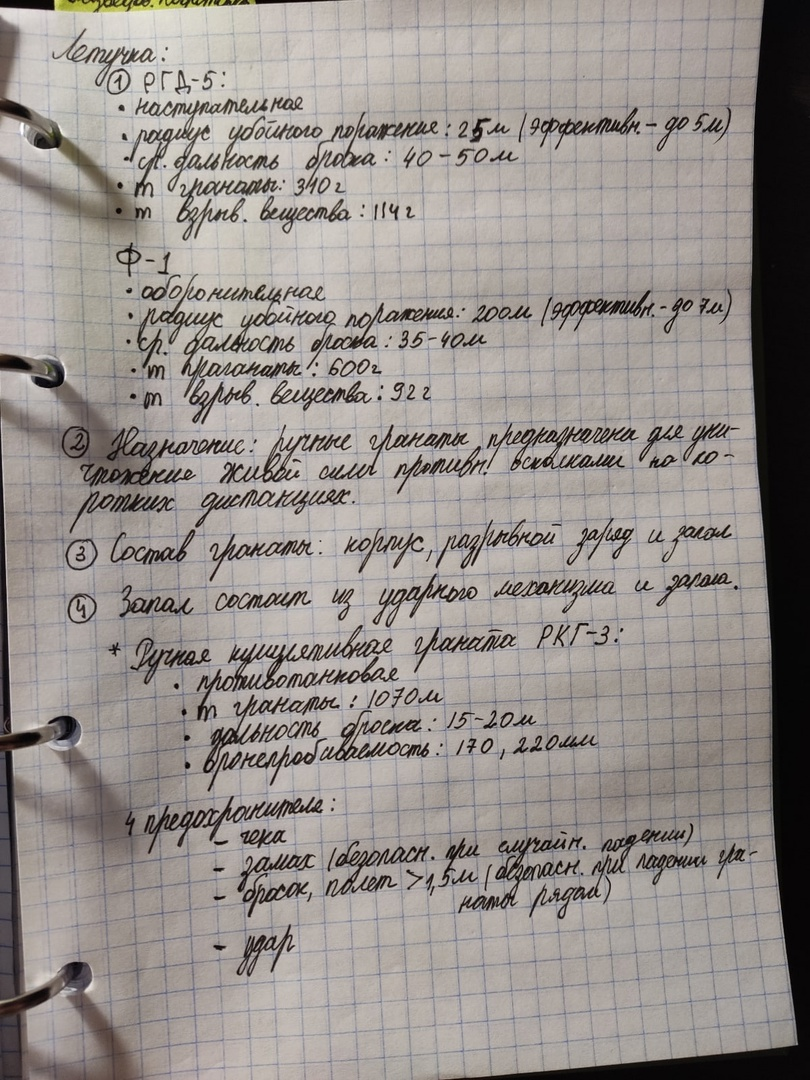 Летучка:
① РГД-5:
• наступательная
• радиус убойного поражения: 25м (эффективн. - до 5м)
• ср. дальность броска: 40-50м
• m гранаты: 310г
• m взрыв. вещества: 114г
Ф-1
• оборонительная
• радиус убойного поражения: 200м (эффективн. - до 7м)
• ср. дальность броска: 35-40м
• m праганаты: 600г
• m взрыв. вещества: 92г
② Назначение: ручные гранаты предназначена для уни-
чтожение живой силы противн. осколками на ко-
ротких дистанциях.
③ Состав гранаты: корпус, разрывной заряд и запал
④ Запал состоит из ударного механизма и запала.
* Ручная кумулятивная граната РКГ-3:
• противотанковая
• m гранаты: 1070м
• дальность броска: 15-20м
• бронепробиваемость: 170, 220мм
4 предохранителя:
- чека
- замах (безопасн. при случайн. падении)
- бросок, полет >1,5м (безопасн. при падении гра-
наты рядом)
- удар